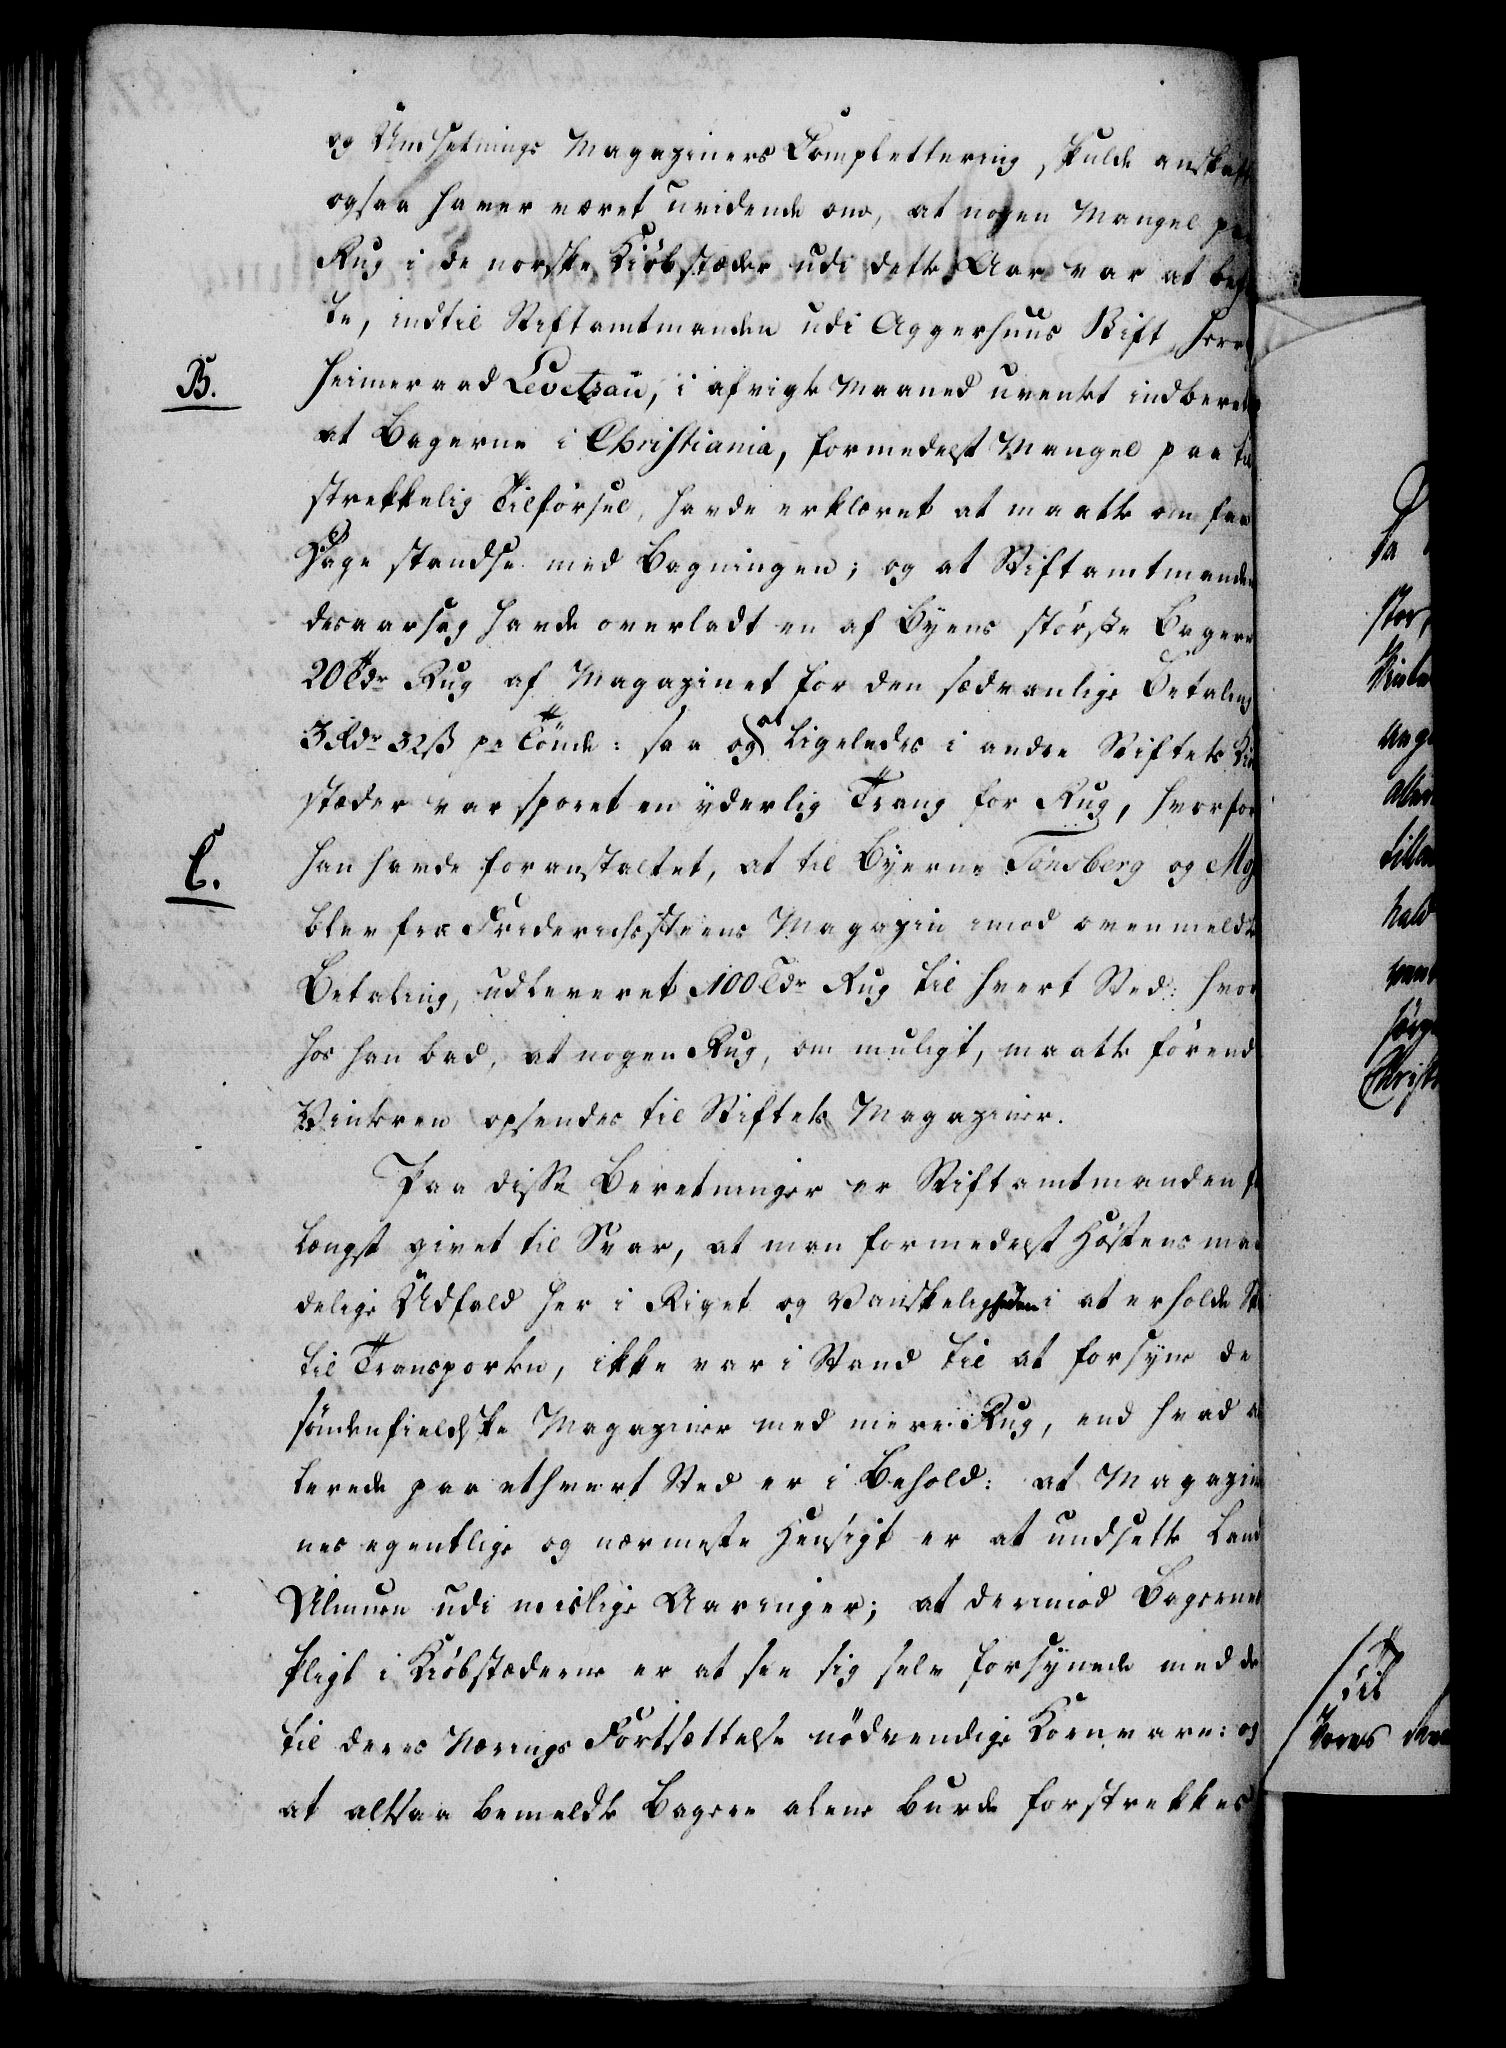 og Undsetnings Magaziners Complettering, skulde anskaf
ogsaa haver været uvidende om, at nogen Mangel pa
Rug i de norske Kiöbstæder udi dette Aar var at bef
te, indtil Stiftamtmanden udi Aggerhuus Stift, Herr
B.
heimeraad Levetzau, i afvigte Maaned uventet indberet
at Bagerne i Christiania, formedelst Mangel paa til
strekkelig Tilförsel, havde erklæret at maatte om faa
Dage standse med Bagningen; og at Stiftamtmanden
desaarsag havde overladt en af Byens störste Bagere
20 Tdr Rug af Magazinet for den sædvanlige Betaling
3 Rdr 32 ß pr Tönde: saa og at ligeledes i andre Stiftets Kiö
stæder var sporet en yderlig Trang for Rug, hvorfor
C.
han havde foranstaltet, at til Byerne Tönsberg og Mo
blev fra Friderichssteens Magazin imod ovenmeldte
Betaling, udleveret 100 Tdr Rug til hvert Sted: hvor
hos han bad, at nogen Rug, om muligt, maatte förend
Vinteren opsendes til Stiftets Magaziner.
Paa disse Beretninger er Stiftamtmanden for
længst givet til Svar, at man formedelst Höstens maa
delige Udfald her i Riget og Vanskeligheden i at erholde Sk
til Transporten, ikke var i Stand til at forsyne de
söndenfieldske Magaziner med mere Rug, end hvad al
lerede paa ethvert Sted er i Behold: at Magazi
nes egentlige og nærmeste Hensigt er at undsette Land
Almuen udi mislige Aaringer; at derimod Bagernes
Pligt i Kiöbstæderne er at see sig selv forsynede med de
til deres Nærings Fortsættelse nödvendige Kornvare: og
at altsaa bemeldte Bagere alene burde forstrekkes
Da
stor,
Vinte
ang
aller
tille
hold
sörg
Christ
Til
Vores